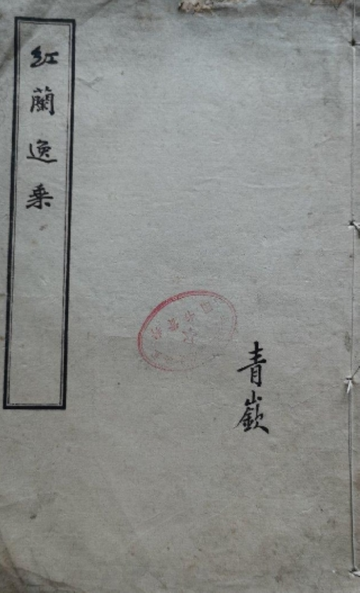 红蘭逸乘
青嶔